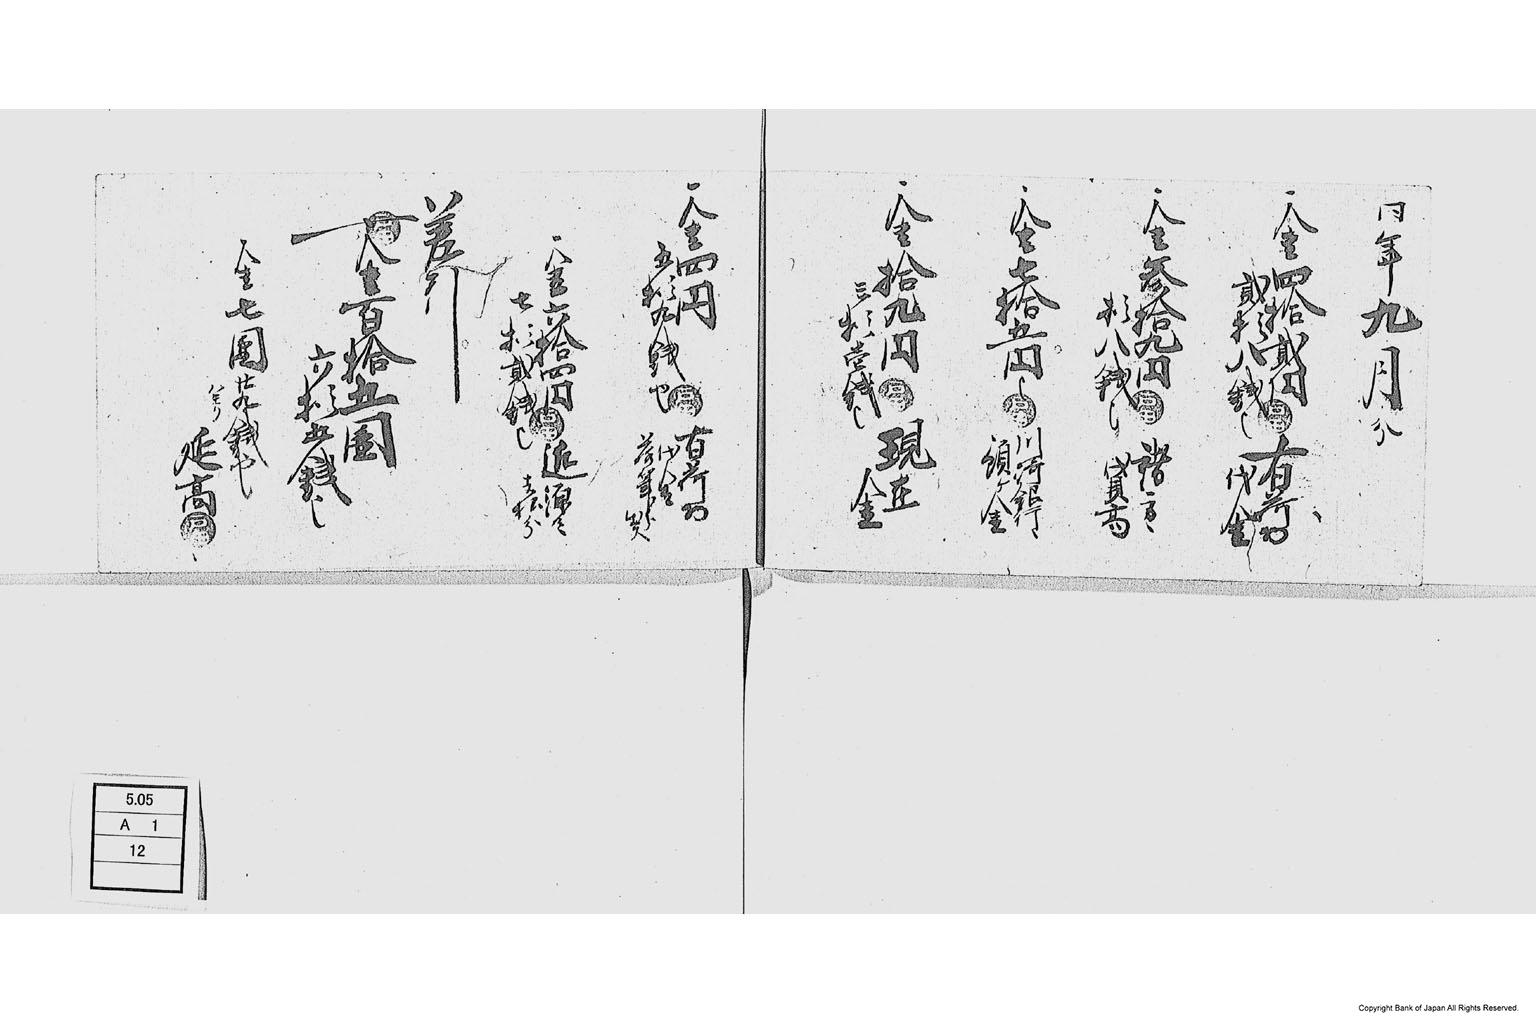 同年九月分
一金四拾貳円
貳拾八銭
有荷物
代金
一金参拾九円
拾八銭
諸方
貸高
一金七拾五円
川崎銀行
預ヶ金
一金拾九円
三拾壱銭
現在
金
一金四円
五拾九銭也
有荷物
代金
一金六拾四円
七拾貳銭
差引
一金百拾五圓
六拾五銭
一金七圓
廿九銭也
延高
5.05
A 1
12
Copyright Bank of Japan All Rights Reserved.